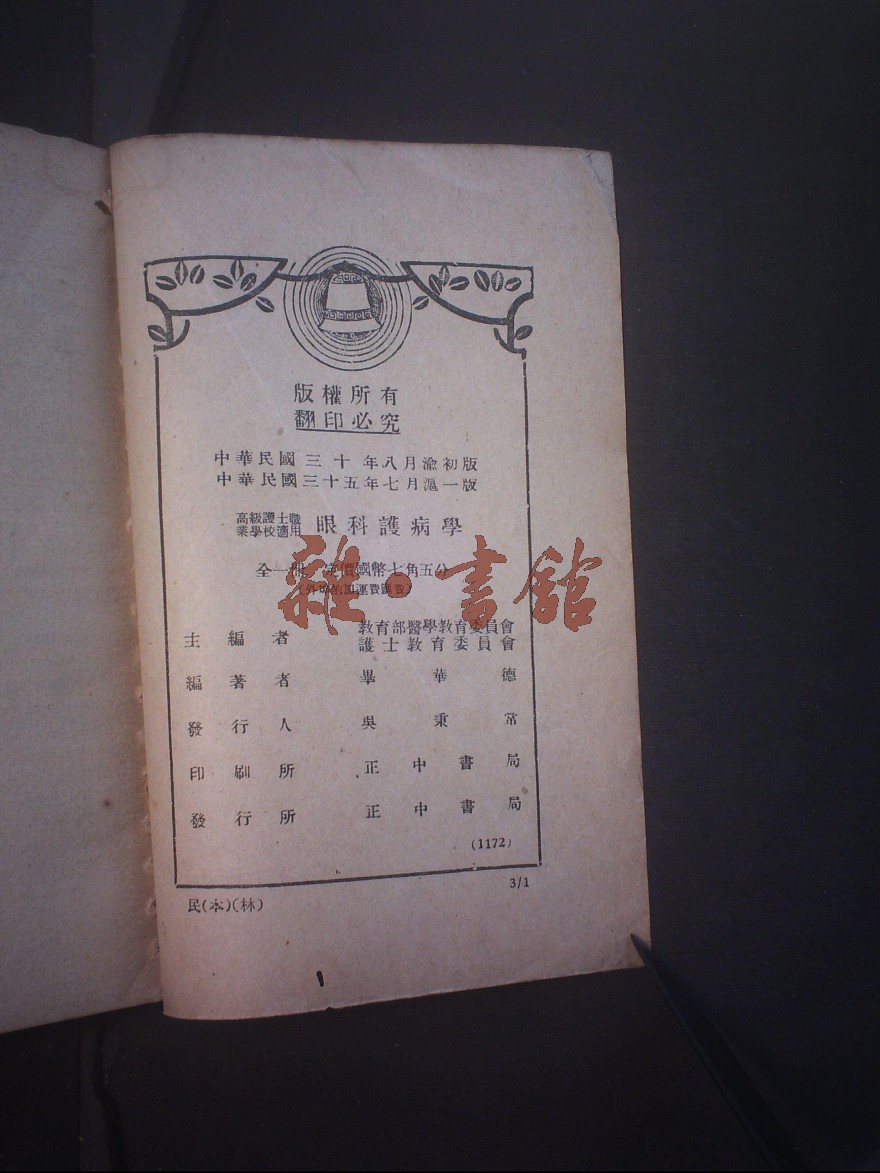 版權所有
翻印必究
中華民國三十年八月渝初版
中華民國三十五年七月滬一版
高級護士職
業學校適用
眼科護病學
全一冊 定價國幣七角五分
(外埠酌加運費匯費)
主編者
教育部醫學教育委員會
護士教育委員會
編著者 畢華德
發行人 吳秉常
印刷所 正中書局
發行所 正中書局
(1172)
3/1
民(本)(林)
雜·書館